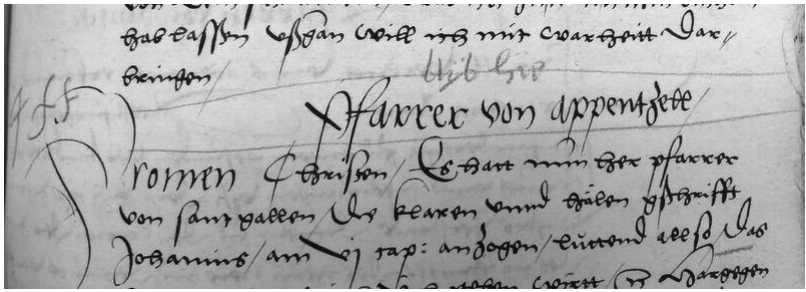 hab lassen vßgan will ich mit warheitt dar⸗
bringen /
blÿb hie
Pfarrer von appentzell /
Fromen Christen / Es hatt min her pfarrer
von sant gallen / die klaren vnnd hälen gschrifft
Johannis / am vj cap: anzogen / luttend allso / das